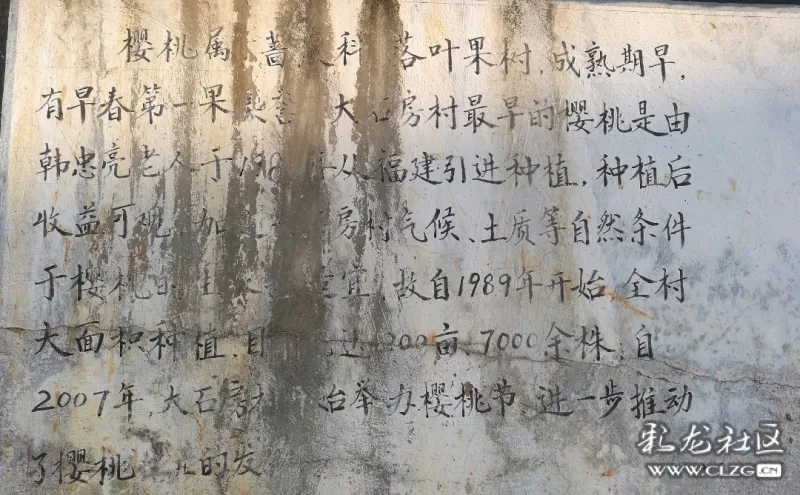 樱桃属 蔷 科 落叶果树,成熟期早,
有早春第一果 大 房村最早的樱桃是由
韩忠亮老人于198 年从福建引进种植,种植后
收益可观 加 房村气候、土质等自然条件
于樱桃的 宜,故自1989年开始,全村
大面积种植,目 达 200亩,7000余株,自
2007年,大石房村 始举办樱桃节,进一步推动
了樱桃 的发
彩龙社区
WWW.CLZG.CN